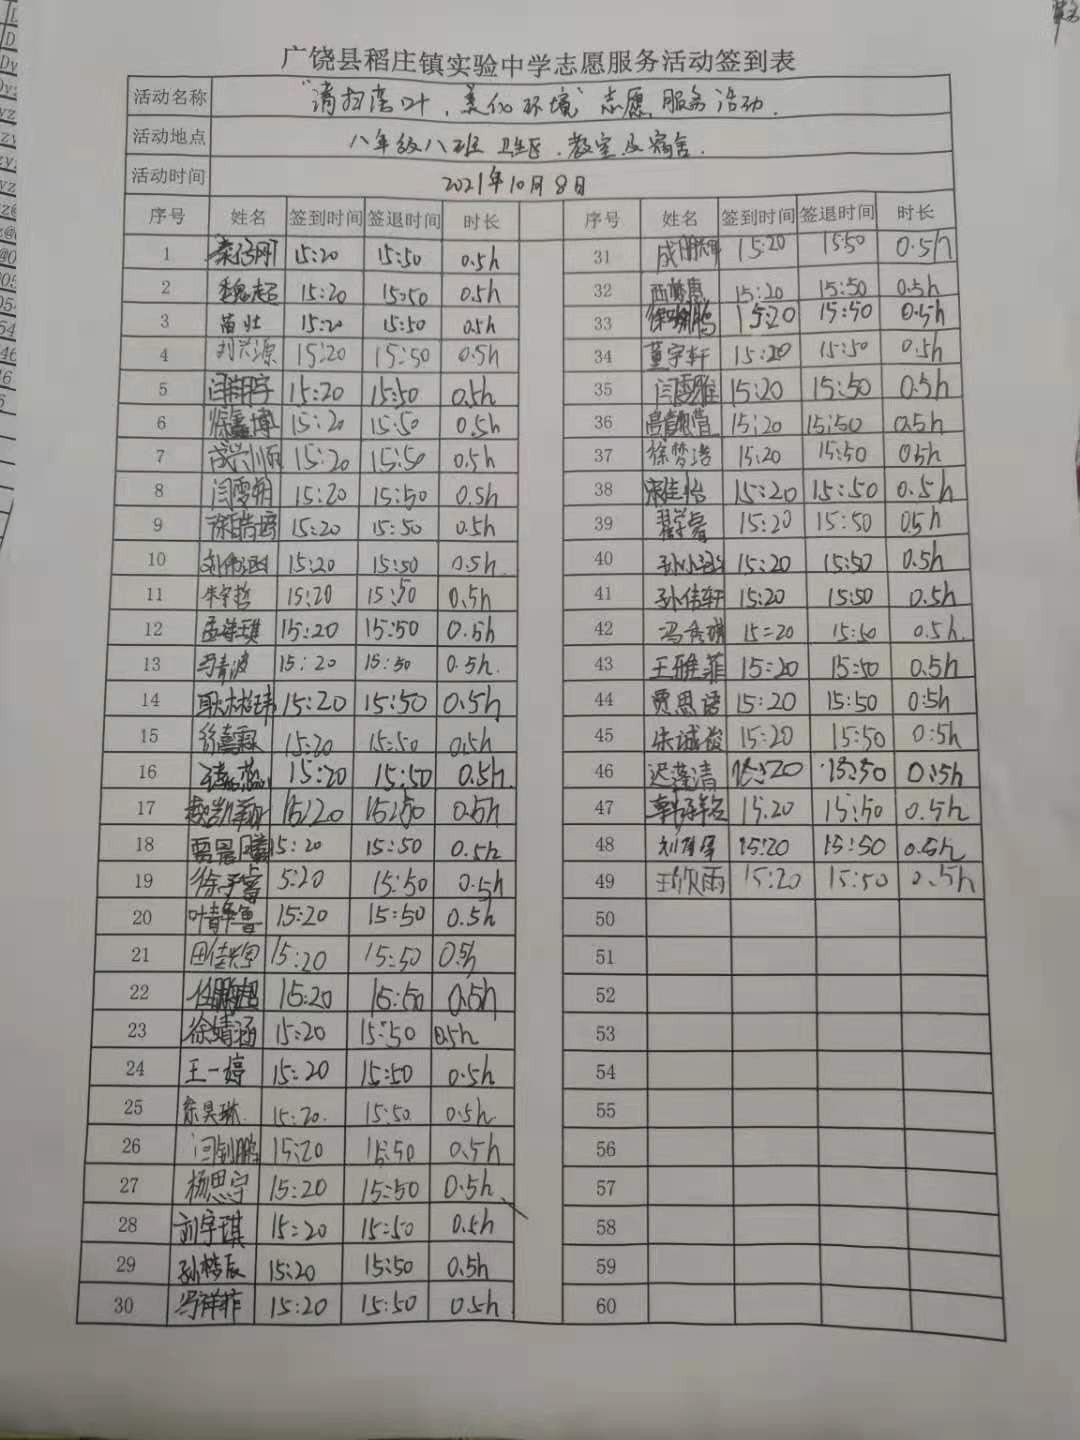 广饶县稻庄镇实验中学志愿服务活动签到表
活动名称 "清扫落叶,美化环境"志愿服务活动.
活动地点 八年级八班 卫生区.教室及宿舍.
活动时间 2021年10月8日
序号 姓名 签到时间 签退时间 时长 序号 姓名 签到时间 签退时间 时长
1 15:20 15:50 0.5h 31 15:20 15:50 0.5h
2 魏超 15:20 15:50 0.5h 32 15:20 15:50 0.5h
3 苗壮 15:20 15:50 0.5h 33 15:20 15:50 0.5h
4 刘兴源 15:20 15:50 0.5h 34 董宇轩 15:20 15:50 0.5h
5 15:20 15:50 0.5h 35 闫雪雅 15:20 15:50 0.5h
6 徐鑫博 15:20 15:50 0.5h 36 15:20 15:50 0.5h
7 成兴顺 15:20 15:50 0.5h 37 徐梦浩 15:20 15:50 0.5h
8 15:20 15:50 0.5h 38 宋佳怡 15:20 15:50 0.5h
9 15:20 15:50 0.5h 39 15:20 15:50 0.5h
10 15:20 15:50 0.5h. 40 15:20 15:50 0.5h
11 15:20 15:50 0.5h 41 孙伟轩 15:20 15:50 0.5h
12 15:20 15:50 0.5h 42 冯秀琪 15:20 15:50 0.5h.
13 15:20 15:50 0.5h. 43 王雅菲 15:20 15:50 0.5h
14 15:20 15:50 0.5h 44 贾思语 15:20 15:50 0.5h
15 15:20 15:50 0.5h 45 朱诚俊 15:20 15:50 0.5h
16 15:20 15:50 0.5h. 46 迟蓬清 15:20 15:50 0.5h
17 魏凯翔 15:20 15:50 0.5h 47 15:20 15:50 0.5h
18 15:20 15:50 0.5h 48 15:20 15:50 0.5h
19 徐子睿 5:20 15:50 0.5h 49 王欣雨 15:20 15:50 0.5h
20 15:20 15:50 0.5h 50
21 15:20 15:50 0.5h 51
22 任鹏超 15:20 15:50 0.5h 52
23 徐婧涵 15:20 15:50 0.5h 53
24 王一婷 15:20 15:50 0.5h 54
25 15:20. 15:50 0.5h 55
26 闫钊鹏 15:20 15:50 0.5h 56
27 杨思宁 15:20 15:50 0.5h 57
28 刘宇琪 15:20 15:50 0.5h 58
29 孙梓辰 15:20 15:50 0.5h 59
30 冯祥菲 15:20 15:50 0.5h 60